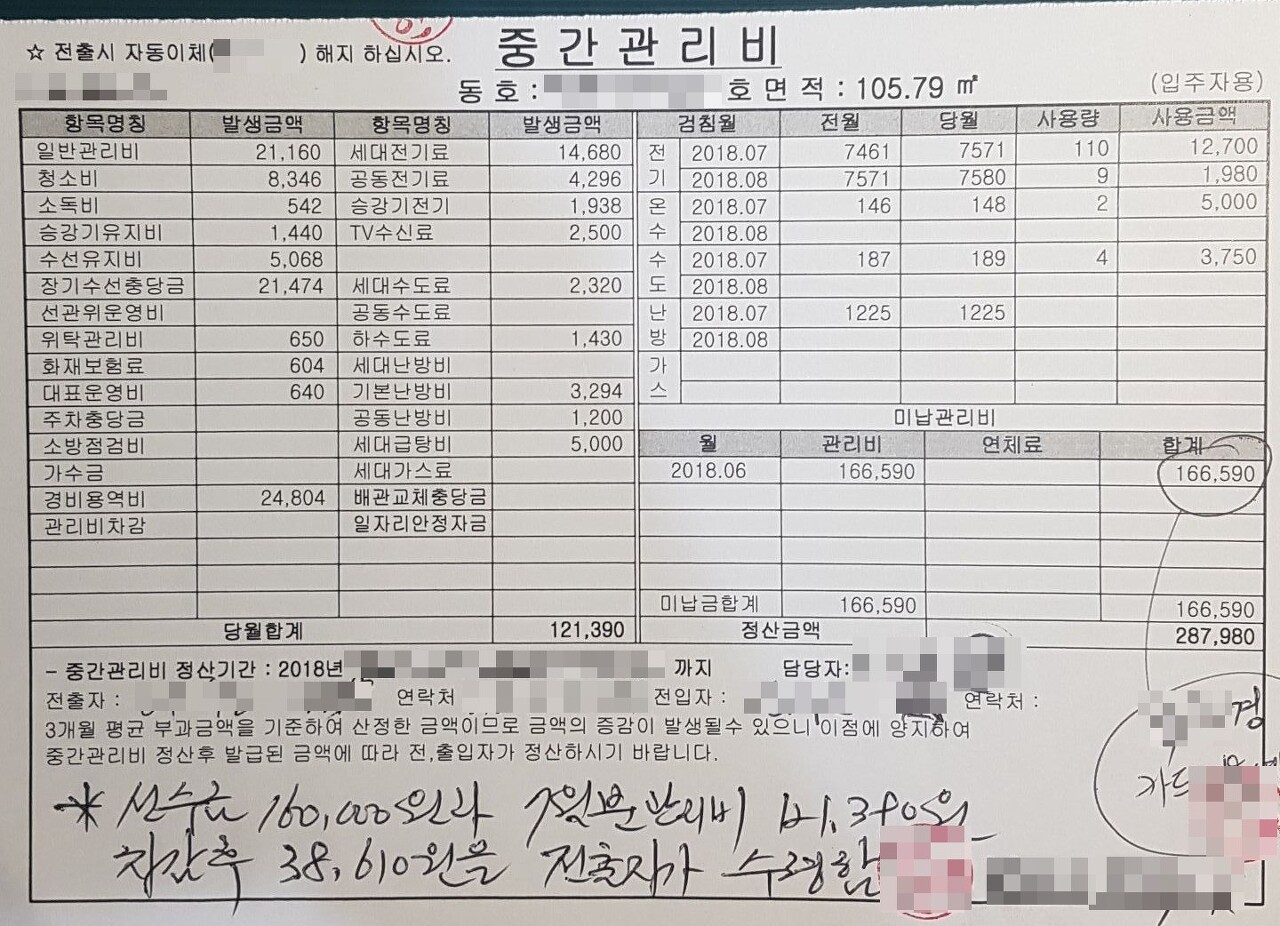 ☆ 전출시 자동이체( ) 해지 하십시오.
중간관리비
동 호 : 호 면 적 : 105.79 ㎡
(입주자용)
항목명칭 발생금액 항목명칭 발생금액
일반관리비 21,160 세대전기료 14,680
청소비 8,346 공동전기료 4,296
소독비 542 승강기전기 1,938
승강기유지비 1,440 TV수신료 2,500
수선유지비 5,068
장기수선충당금 21,474 세대수도료 2,320
선관위운영비 공동수도료
위탁관리비 650 하수도료 1,430
화재보험료 604 세대난방비
대표운영비 640 기본난방비 3,294
주차충당금 공동난방비 1,200
소방점검비 세대급탕비 5,000
가수금 세대가스료
경비용역비 24,804 배관교체충당금
관리비차감 일자리안정자금
당월합계 121,390
검침월 전월 당월 사용량 사용금액
전 2018.07 7461 7571 110 12,700
기 2018.08 7571 7580 9 1,980
온 2018.07 146 148 2 5,000
수 2018.08
수 2018.07 187 189 4 3,750
도 2018.08
난 2018.07 1225 1225
방 2018.08
가
스
미납관리비
월 관리비 연체료 합계
2018.06 166,590 166,590
미납금합계 166,590 166,590
정산금액 287,980
- 중간관리비 정산기간 : 2018년 까지 담당자:
전출자 : 연락처 전입자 : 연락처 :
3개월 평균 부과금액을 기준하여 산정한 금액이므로 금액의 증감이 발생될수 있으니 이점에 양지하여
중간관리비 정산후 발급된 금액에 따라 전,출입자가 정산하시기 바랍니다.
* 선수금 160,000원과 7월분 관리비 121,390원
차감후 38,610원을 전출자가 수령함
경
카드